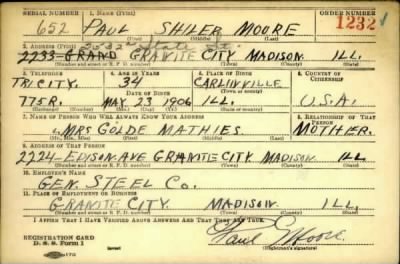 SERIAL NUMBER 1. NAME (Print) ORDER NUMBER
652 PAUL SHILER MOORE 1232
(First) (Middle) (Last)
2. ADDRESS (Print) 2032 State St.
2233 GRAND GRANITE CITY MADISON ILL.
(Number and street or R. F. D. number) (Town) (County) (State)
3. TELEPHONE 4. AGE IN YEARS 5. PLACE OF BIRTH 6. COUNTRY OF CITIZENSHIP
TRI CITY. 34 CARLINVILLE
DATE OF BIRTH (Town or county)
775R. MAY 23 1906 ILL. U.S.A.
(Exchange) (Number) (Mo.) (Day) (Yr.) (State or country)
7. NAME OF PERSON WHO WILL ALWAYS KNOW YOUR ADDRESS 8. RELATIONSHIP OF THAT PERSON
MRS GOLDE MATHIES MOTHER.
(Mr., Mrs., Miss) (First) (Middle) (Last)
9. ADDRESS OF THAT PERSON
2224 EDISON AVE GRANITE CITY MADISON ILL
(Number and street or R. F. D. number) (Town) (County) (State)
10. EMPLOYER'S NAME
GEN. STEEL CO.
11. PLACE OF EMPLOYMENT OR BUSINESS
GRANITE CITY MADISON ILL.
(Number and street or R. F. D. number) (Town) (County) (State)
I AFFIRM THAT I HAVE VERIFIED ABOVE ANSWERS AND THAT THEY ARE TRUE.
REGISTRATION CARD
D. S. S. Form 1
Paul S Moore
(Registrant's signature)